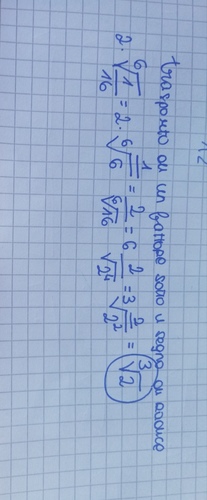 trasporto di un fattore sotto il segno di radice
2 · ⁶√(1/16) = 2 · ⁶√1/⁶√16 = 2/⁶√2⁴ = 2/³√2² = ³√2